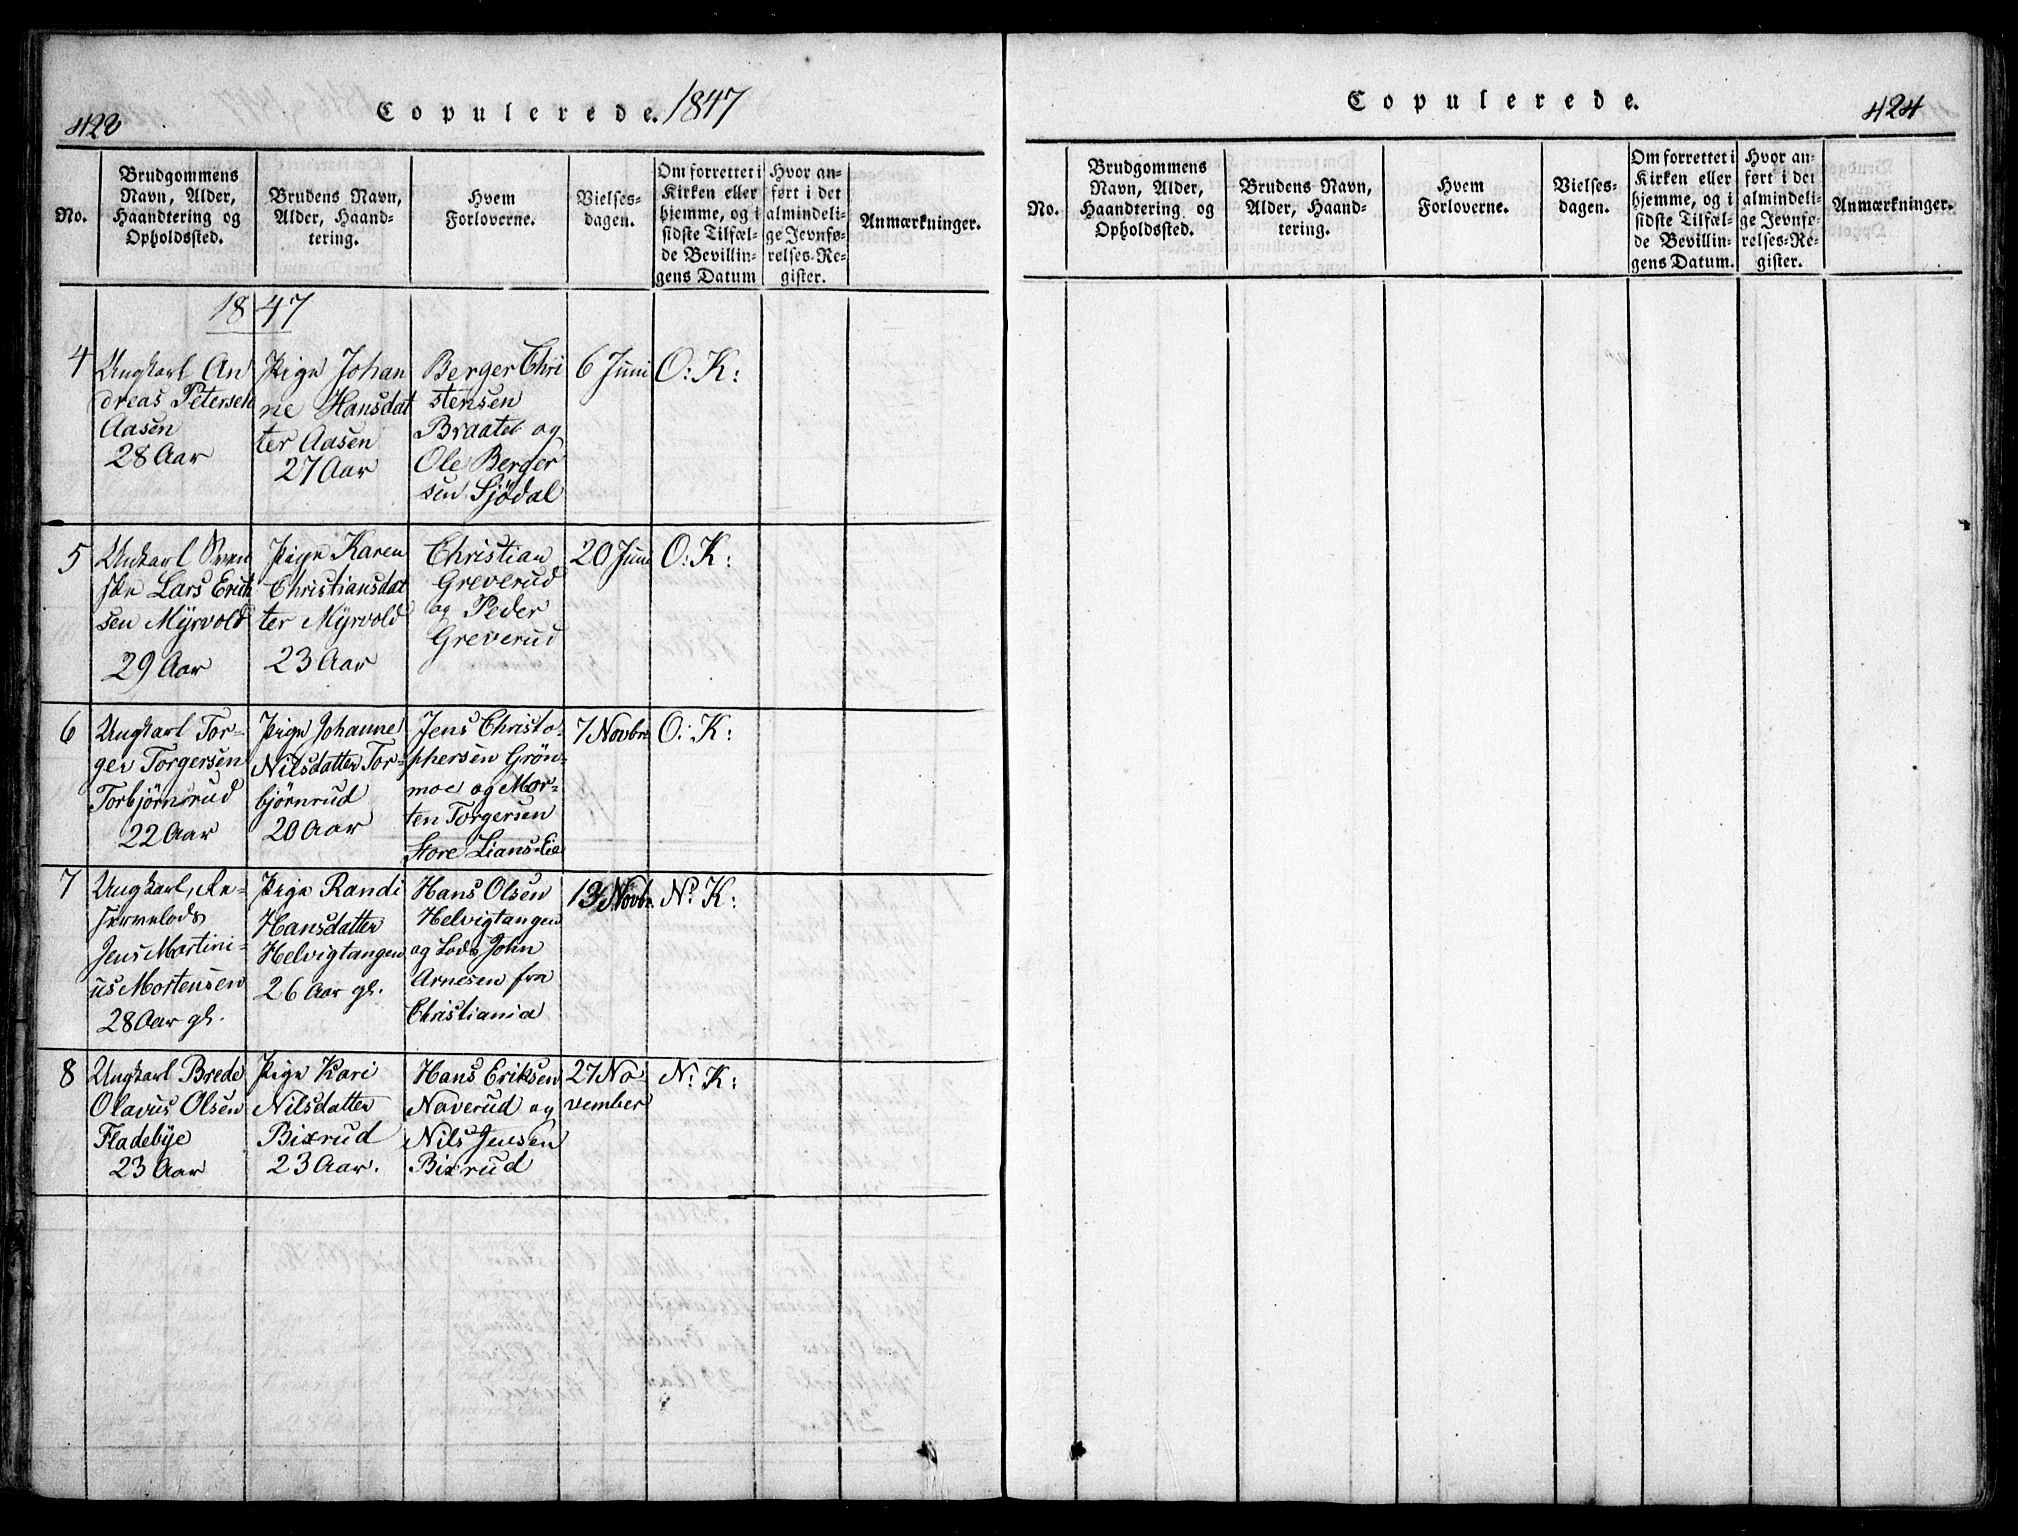 423
Copulerede. 1847
No.
Brudgommens
Navn, Alder,
Haandtering og
Opholdssted.
Brudens Navn,
Alder, Haand-
tering.
Hvem
Forloverne.
Vielses-
dagen.
Om forrettet i
Kirken eller
hjemme, og i
sidste Tilfæl-
de Bevillin-
gens Datum
Hvor an-
ført i det
almindeli-
ge Jevnfø-
relses-Re-
gister.
Anmærkninger.
1847
4
Ungkarl An
dreas Petersen
Aasen
28 Aar
Pige Johan
ne Hansdat
ter Aasen
27 Aar
Berger Chri
stensen
Braatel og
Ole Berger
sen Sjödal
6 Juni
O: K:
5
Unkarl Sven
ske Lars Erik
sen Myrvold
29 Aar
Pige Karen
Christiansdat
ter Myrvold
23 Aar
Christian
Greverud
og Peder
Greverud
20 Juni
O: K:
6
Ungkarl Tor-
ger Torgersen
Torbjörnsrud
22 Aar
Pige Johanne
Nilsdatter Tor-
björnrud
20 Aar
Jens Christo-
phersen Grön-
moe og Mor-
ten Torgersen
Store Lians-Eie
7 Novbr
O: K:
7
Ungkarl, Re-
servelods
Jens Martini-
us Mortensen
28 Aar gl.
Pige Randi
Hansdatter
Helvigtangen
26 Aar gl.
Hans Olsen
Helvigtangen
og Lods John
Arnesen fra
Christiania
13 Novbr.
N: K:
8
Ungkarl Brede
Olavus Olsen
Fladebÿe
23 Aar
Pige Kari
Nilsdatter
Bixrud
23 Aar.
Hans Eriksen
Naverud og
Nils Jensen
Bixrud
27 No
vember
N: K:
Copulerede.
424
No.
Brudgommens
Navn, Alder,
Haandtering og
Opholdssted.
Brudens Navn,
Alder, Haand-
tering.
Hvem
Forloverne.
Vielses-
dagen.
Om forrettet i
Kirken eller
hjemme, og i
sidste Tilfæl-
de Bevillin-
gens Datum.
Hvor an-
ført i det
almindeli-
ge Jevnfø-
relses-Re-
gister.
Anmærkninger.